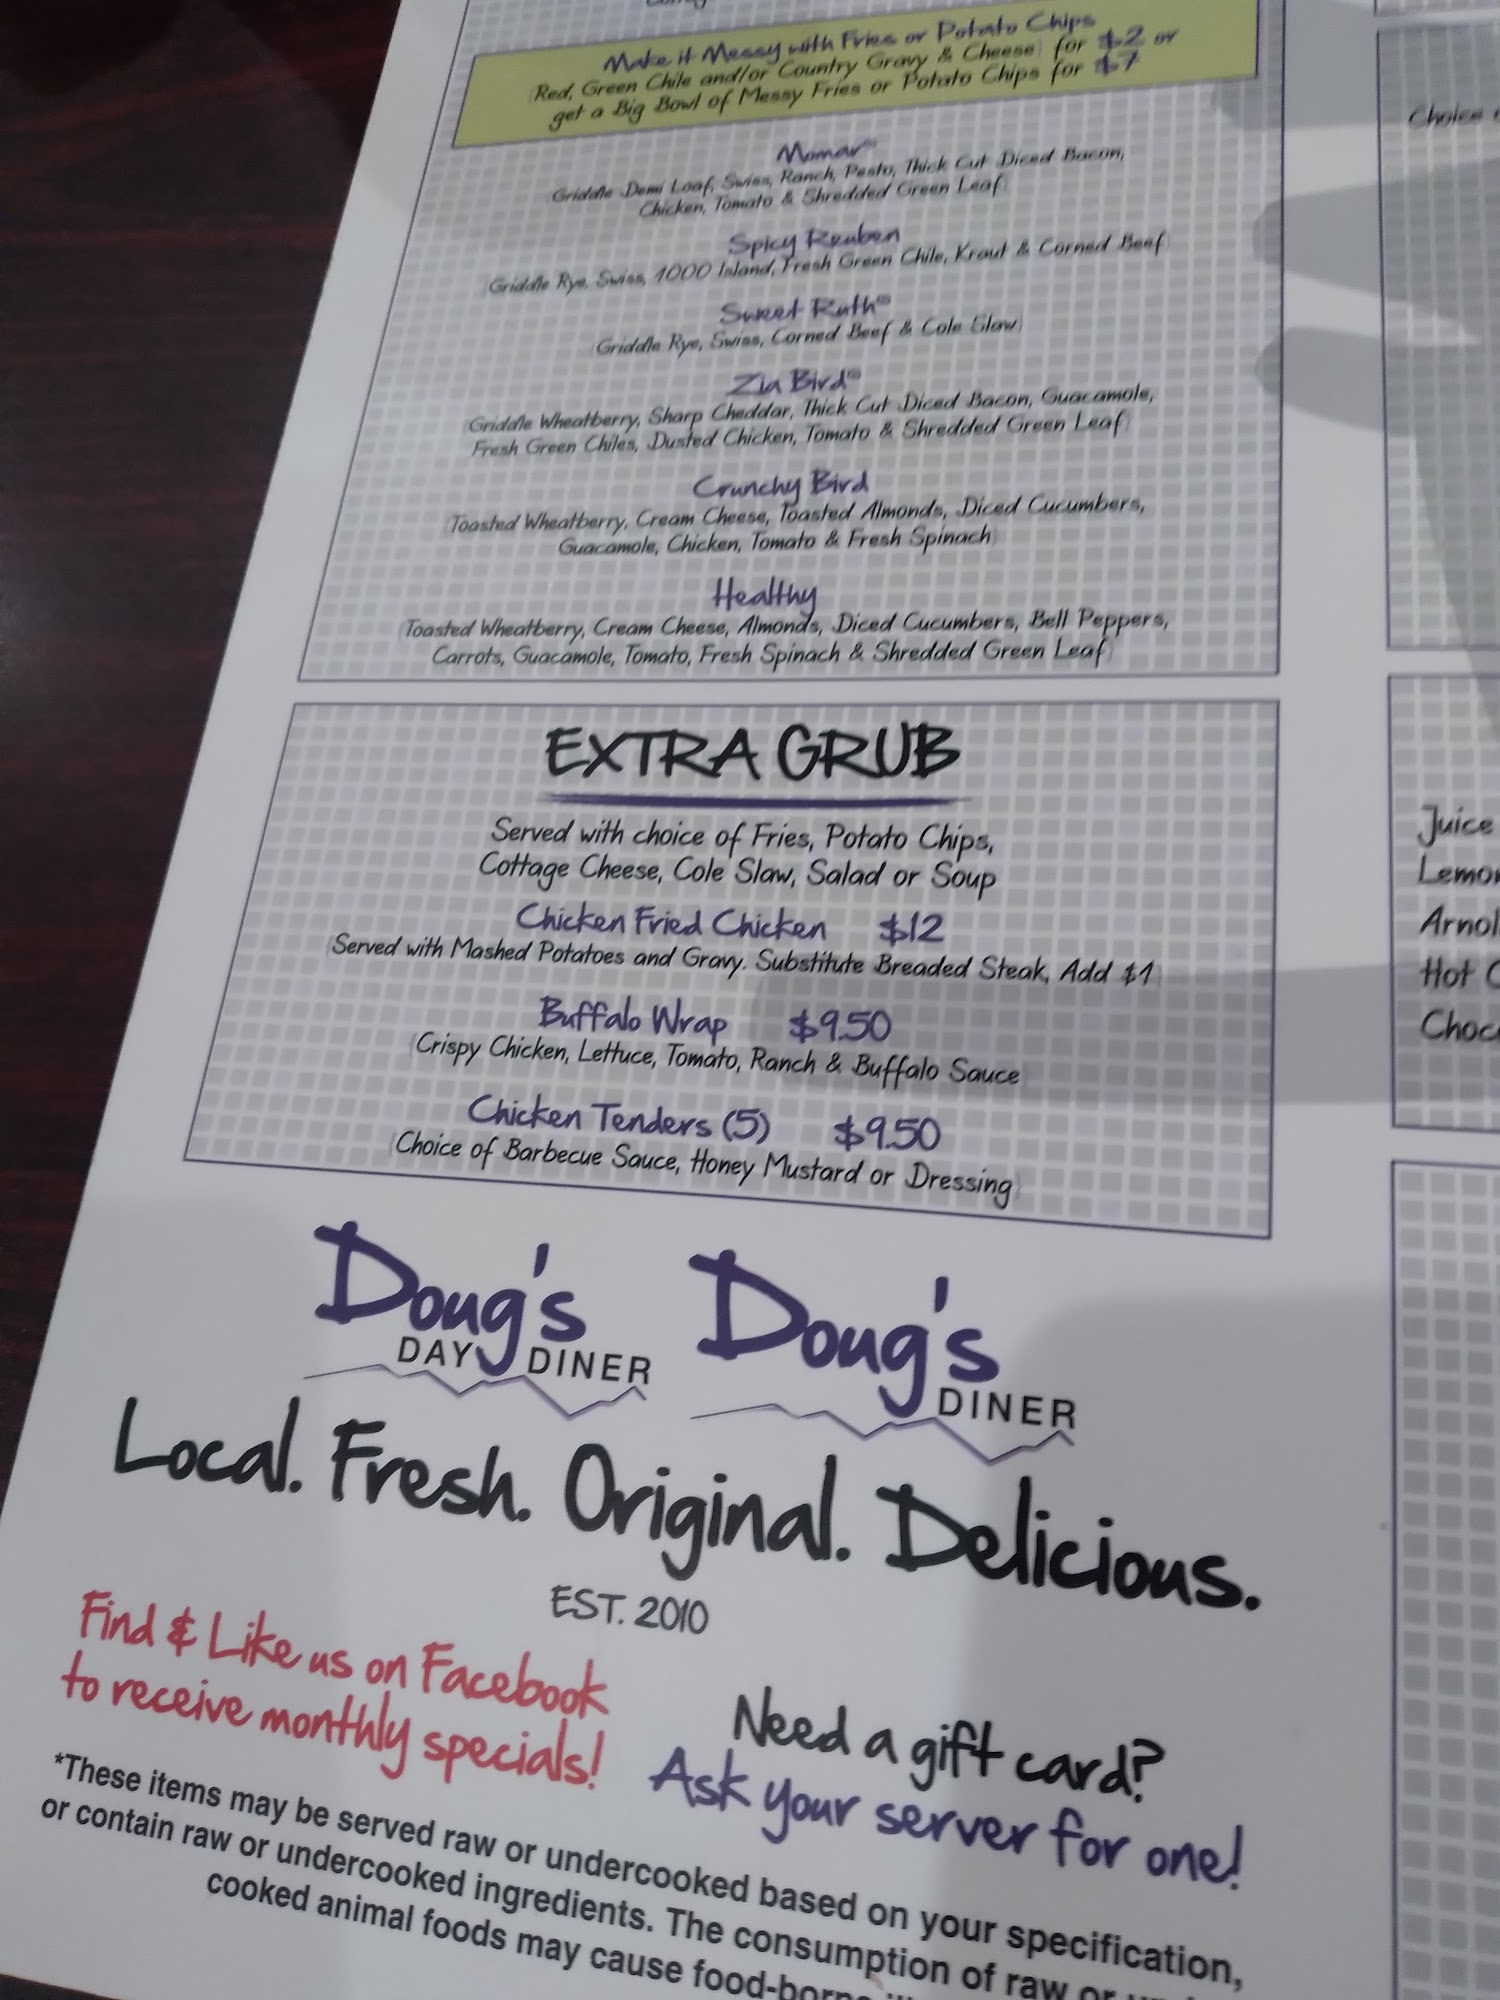 Make it Messy with Fries or Potato Chips
(Red, Green Chile and/or Country Gravy & Cheese) for $2 or
get a Big Bowl of Messy Fries or Potato Chips for $7
Momar®
(Griddle Demi Loaf, Swiss, Ranch, Pesto, Thick Cut Diced Bacon,
Chicken, Tomato & Shredded Green Leaf)
Spicy Reuben
(Griddle Rye, Swiss, 1000 Island, Fresh Green Chile, Kraut & Corned Beef)
Sweet Ruth®
(Griddle Rye, Swiss, Corned Beef & Cole Slaw)
Zia Bird®
(Griddle Wheatberry, Sharp Cheddar, Thick Cut Diced Bacon, Guacamole,
Fresh Green Chiles, Dusted Chicken, Tomato & Shredded Green Leaf)
Crunchy Bird
(Toasted Wheatberry, Cream Cheese, Toasted Almonds, Diced Cucumbers,
Guacamole, Chicken, Tomato & Fresh Spinach)
Healthy
(Toasted Wheatberry, Cream Cheese, Almonds, Diced Cucumbers, Bell Peppers,
Carrots, Guacamole, Tomato, Fresh Spinach & Shredded Green Leaf)
EXTRA GRUB
Served with choice of Fries, Potato Chips,
Cottage Cheese, Cole Slaw, Salad or Soup
Chicken Fried Chicken $12
(Served with Mashed Potatoes and Gravy. Substitute Breaded Steak, Add $1)
Buffalo Wrap $9.50
(Crispy Chicken, Lettuce, Tomato, Ranch & Buffalo Sauce)
Chicken Tenders (5) $9.50
(Choice of Barbecue Sauce, Honey Mustard or Dressing)
Doug's
DAY DINER
Doug's
DINER
Local. Fresh. Original. Delicious.
EST. 2010
Find & Like us on Facebook
to receive monthly specials!
Need a gift card?
Ask your server for one!
*These items may be served raw or undercooked based on your specification,
or contain raw or undercooked ingredients. The consumption of raw or
cooked animal foods may cause
Choice
Juice
Hot